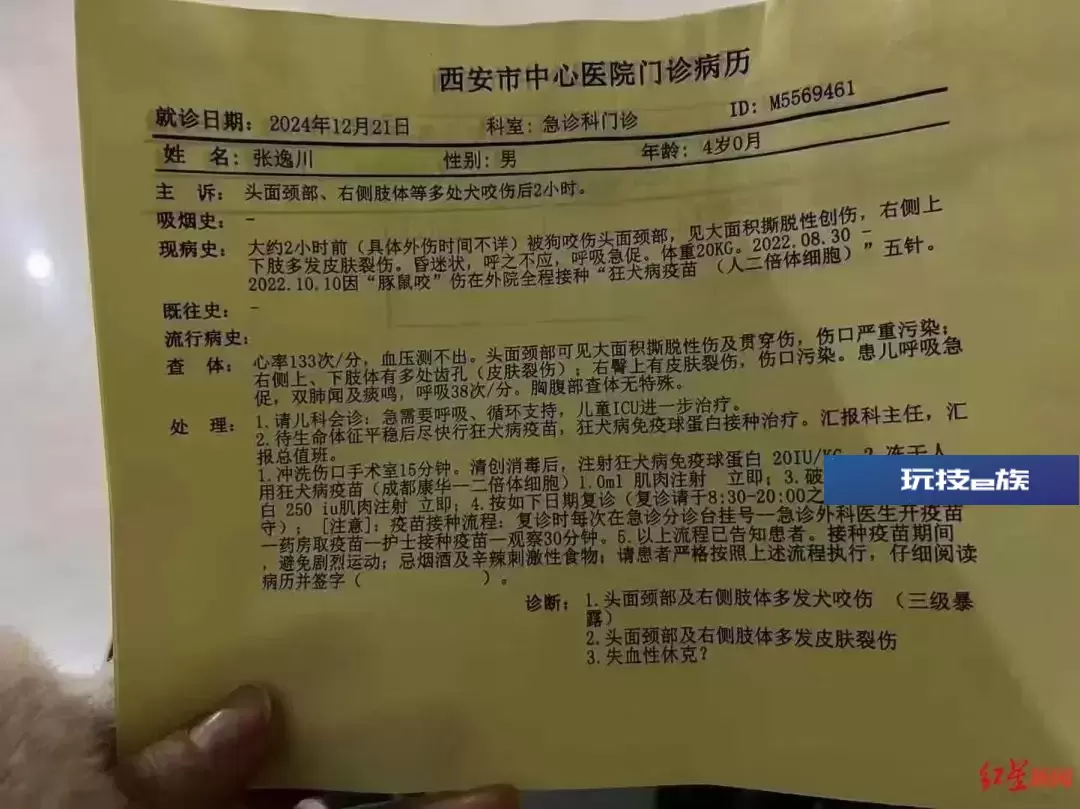 西安市中心医院门诊病历
就诊日期: 2024年12月21日 科室: 急诊科门诊 ID: M5569461
姓 名: 张逸川 性别: 男 年龄: 4岁0月
主 诉: 头面颈部、右侧肢体等多处犬咬伤后2小时。
吸烟史: -
现病史: 大约2小时前（具体外伤时间不详）被狗咬伤头面颈部，见大面积撕脱性创伤，右侧上
下肢多发皮肤裂伤。昏迷状，呼之不应，呼吸急促。体重20KG。2022.08.30 -
2022.10.10因“豚鼠咬”伤在外院全程接种“狂犬病疫苗 （人二倍体细胞）”五针。
既往史: -
流行病史:
查 体: 心率133次/分，血压测不出。头面颈部可见大面积撕脱性伤及贯穿伤，伤口严重污染；
右侧上、下肢体有多处齿孔（皮肤裂伤）；右臀上有皮肤裂伤，伤口污染。患儿呼吸急
促，双肺闻及痰鸣，呼吸38次/分。胸腹部查体无特殊。
处 理: 1.请儿科会诊：急需要呼吸、循环支持，儿童ICU进一步治疗。
2.待生命体征平稳后尽快行狂犬病疫苗，狂犬病免疫球蛋白接种治疗。汇报科主任，汇
报总值班。
1.冲洗伤口手术室15分钟。清创消毒后，注射狂犬病免疫球蛋白 20IU/KG
用狂犬病疫苗（成都康华一二倍体细胞）1.0ml 肌肉注射 立即；3.破
白 250 iu肌肉注射 立即；4.按如下日期复诊（复诊请于8:30-20:00之
守）；[注意]：疫苗接种流程：复诊时每次在急诊分诊台挂号一急诊外科医生开疫苗
一药房取疫苗一护士接种疫苗一观察30分钟。5.以上流程已告知患者。接种疫苗期间
，避免剧烈运动；忌烟酒及辛辣刺激性食物；请患者严格按照上述流程执行，仔细阅读
病历并签字（ ）。
诊断: 1.头面颈部及右侧肢体多发犬咬伤 （三级暴
露）
2.头面颈部及右侧肢体多发皮肤裂伤
3.失血性休克？
玩技e族
红星新闻